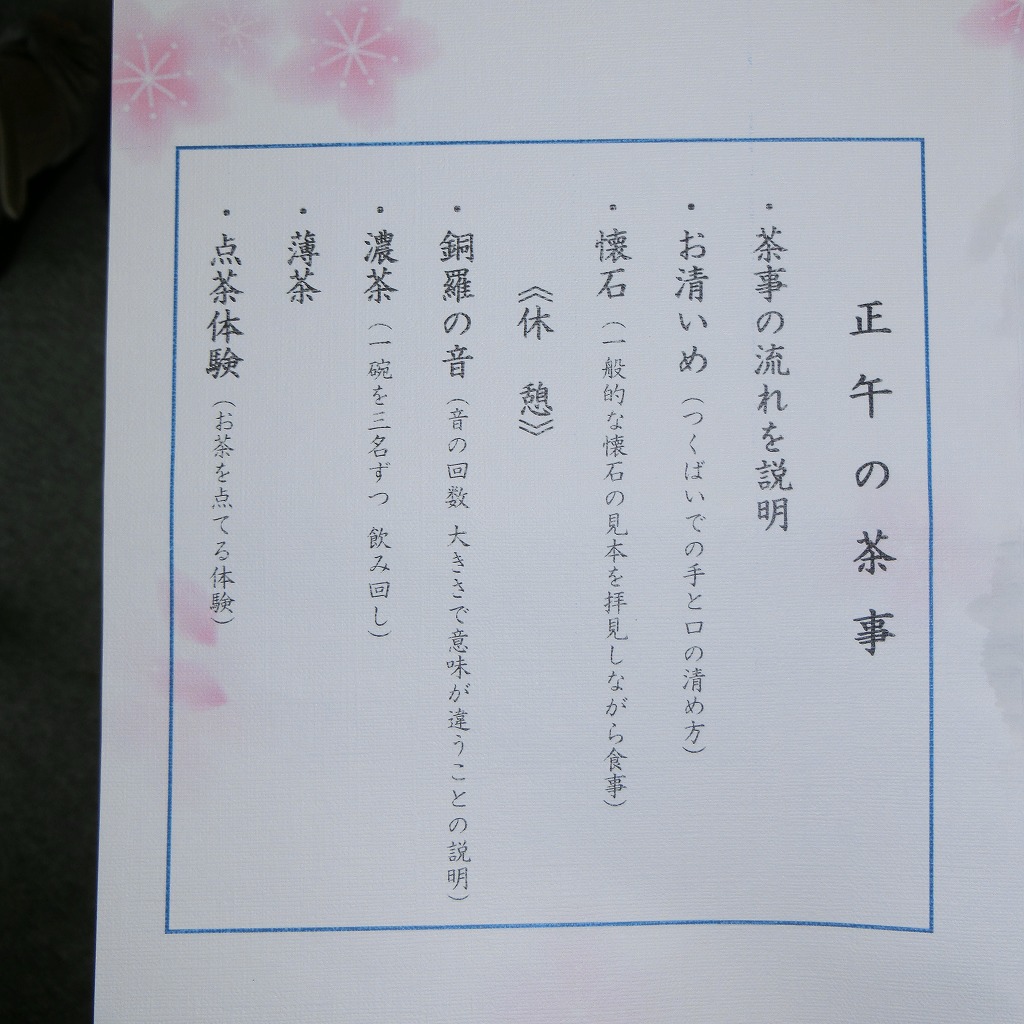 正午の茶事
・茶事の流れを説明
・お清いめ（つくばいでの手と口の清め方）
・懐石（一般的な懐石の見本を拝見しながら食事）
《休 憩》
・銅羅の音（音の回数 大きさで意味が違うことの説明）
・濃茶（一碗を三名ずつ 飲み回し）
・薄茶
・点茶体験（お茶を点てる体験）